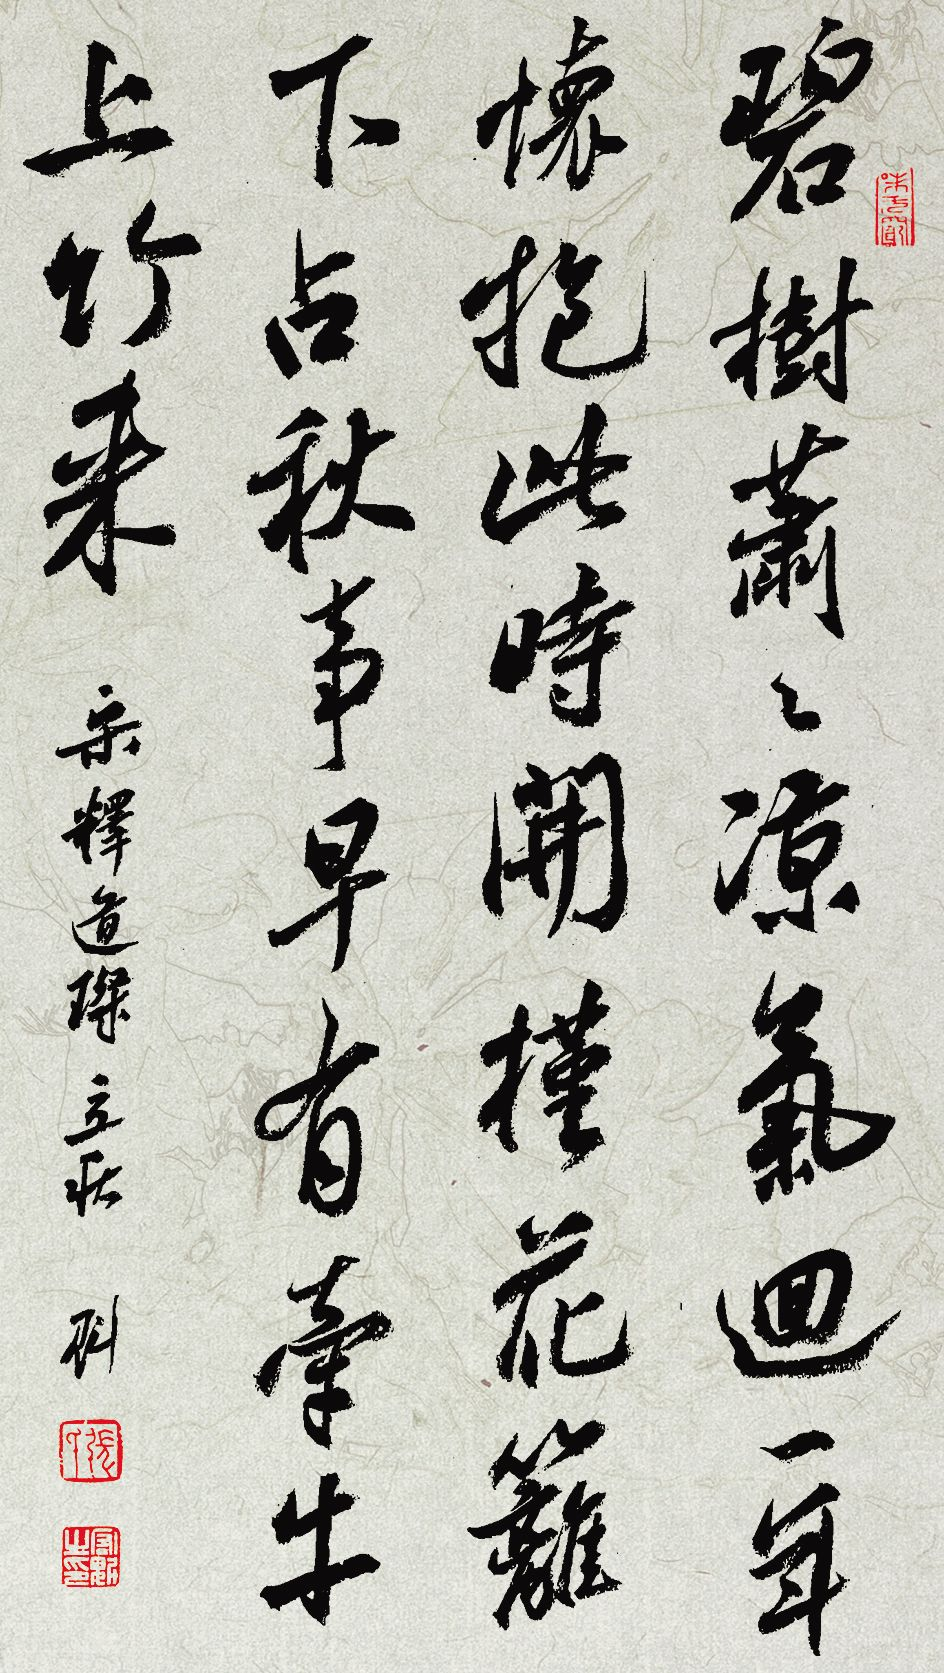 碧樹蕭〻凉氣迴一年
懷抱此時開槿花籬
下占秋事早有牽牛
上竹来
宋釋道璨立秋